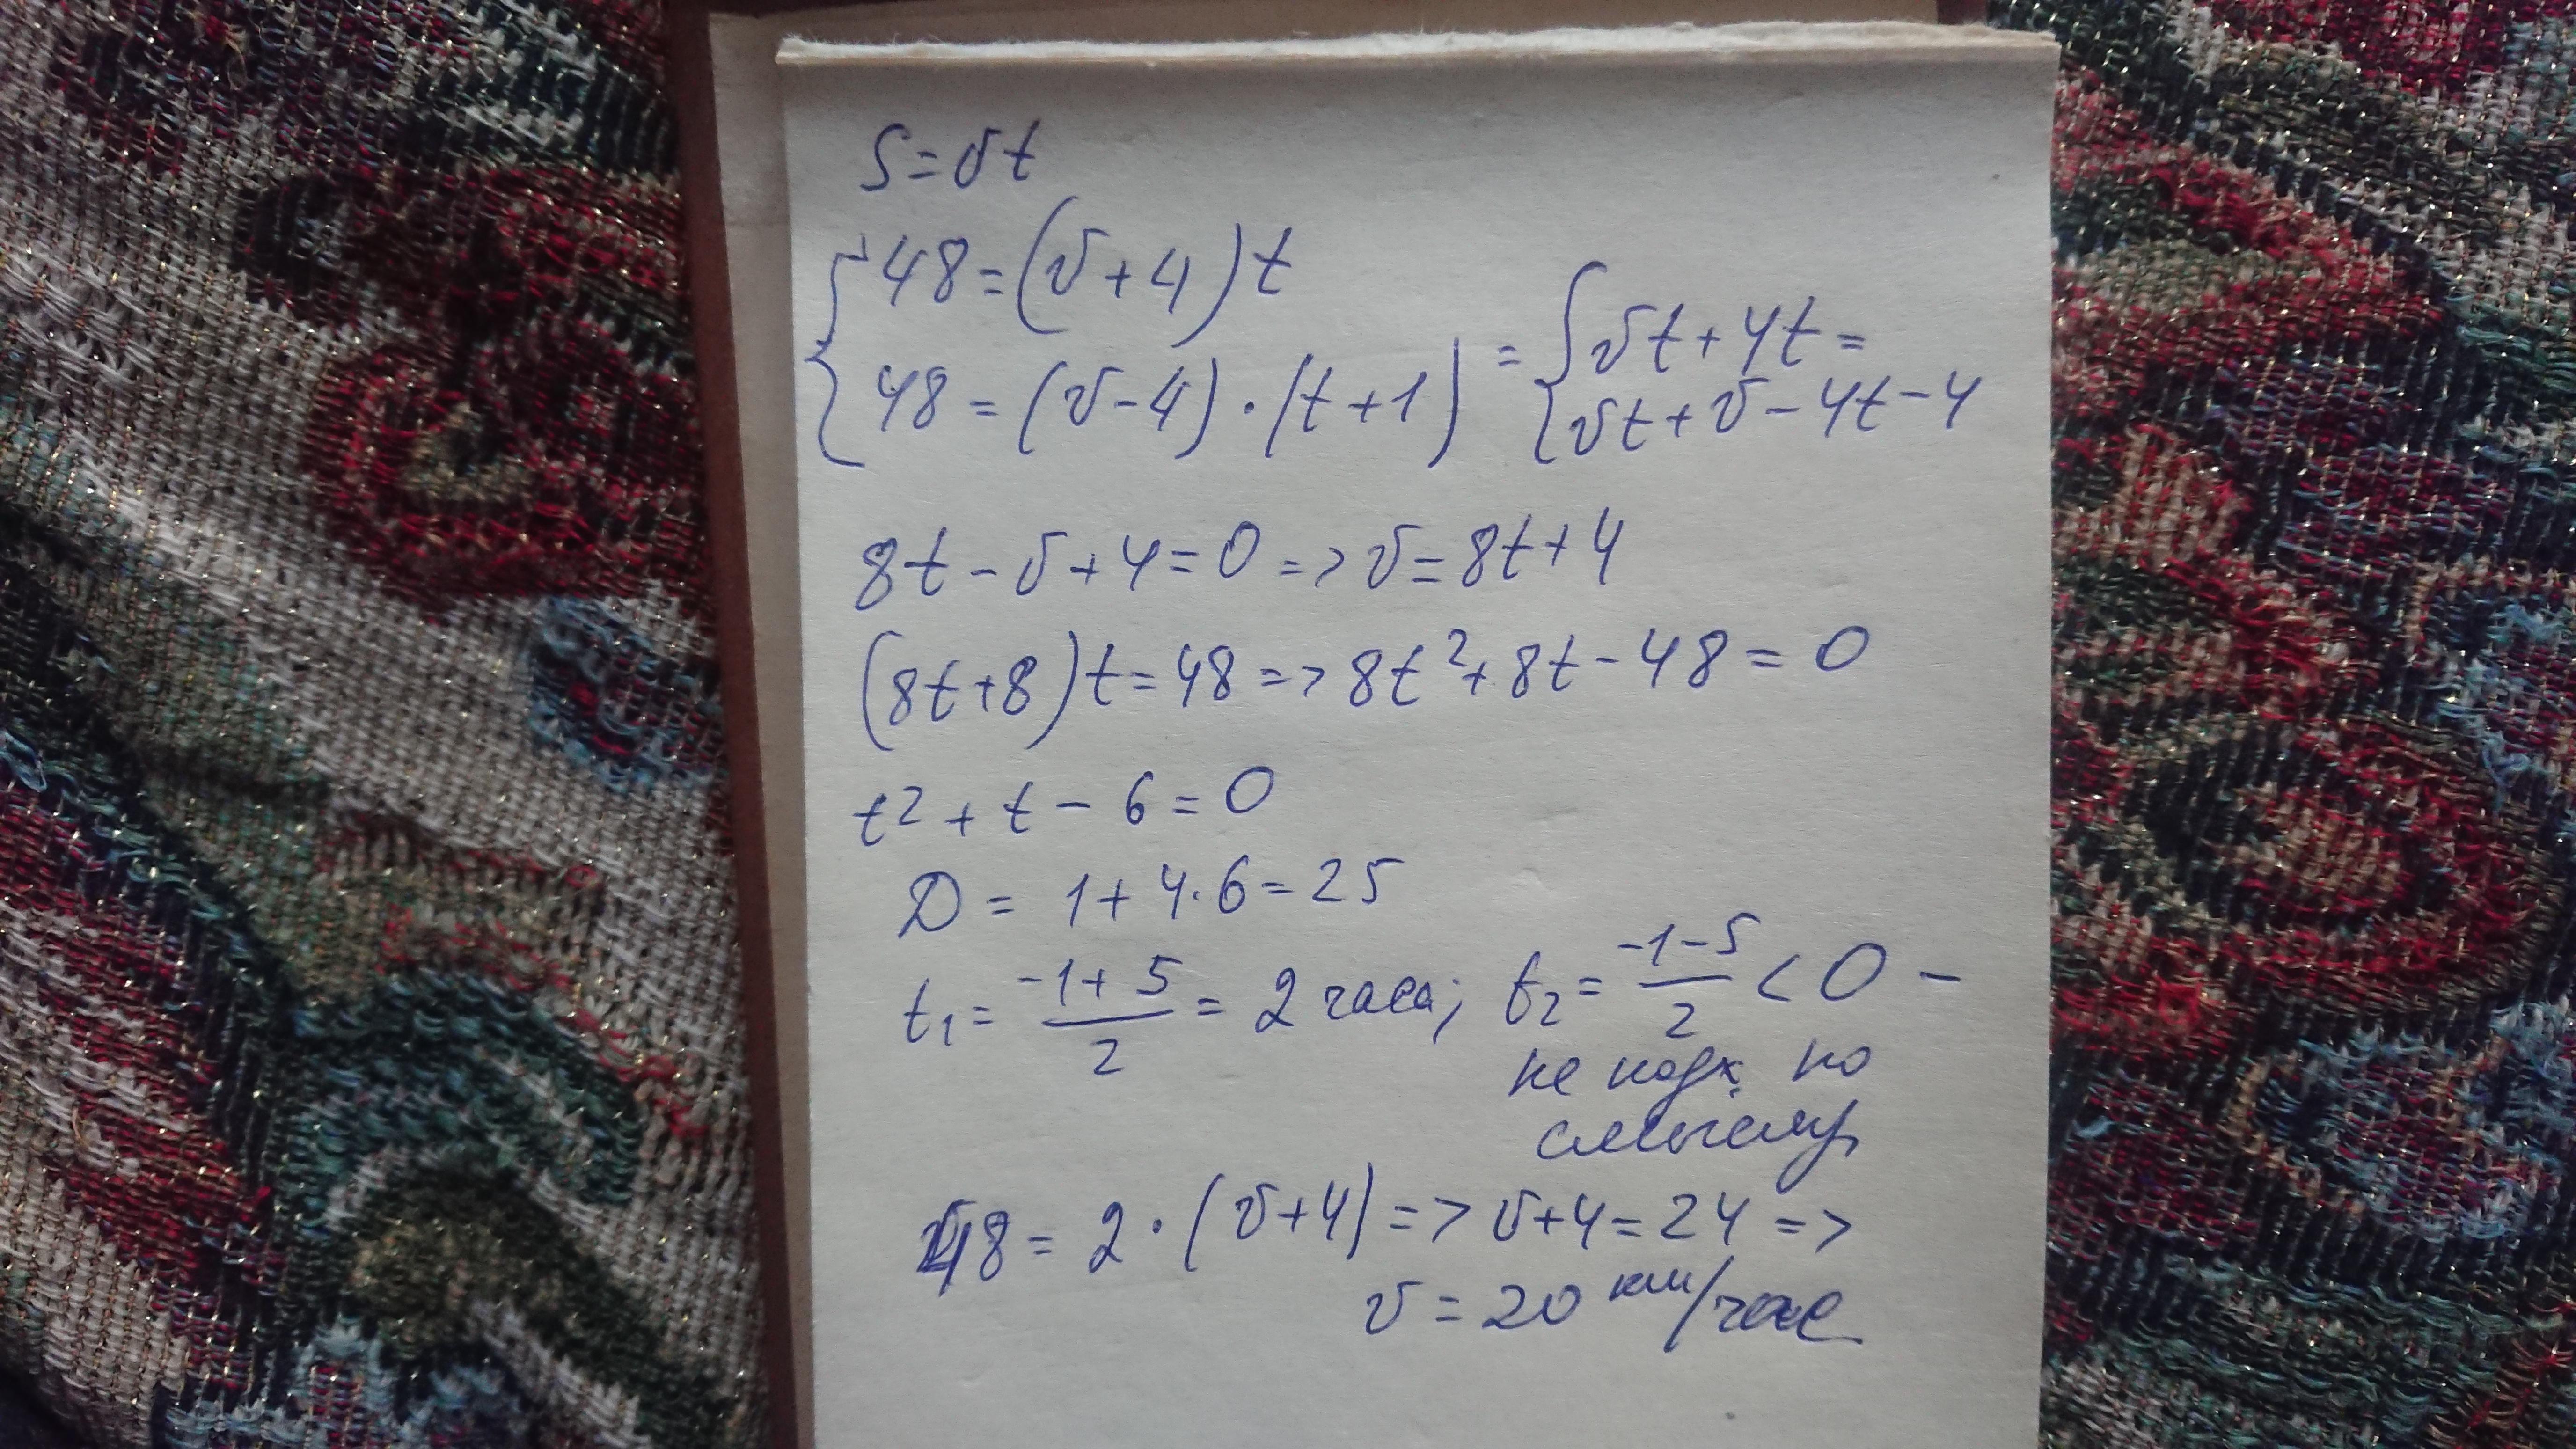 S = vt
{ 48 = (v+4)t
48 = (v-4)·(t+1) = { vt+4t =
vt+v-4t-4
8t-v+4=0 => v=8t+4
(8t+8)t=48 => 8t²+8t-48=0
t²+t-6=0
D = 1+4·6=25
t₁ = (-1+5)/2 = 2 часа; t₂ = (-1-5)/2 < 0 -
не подх. по
смыслу
48 = 2·(v+4) => v+4=24 =>
v = 20 км/час